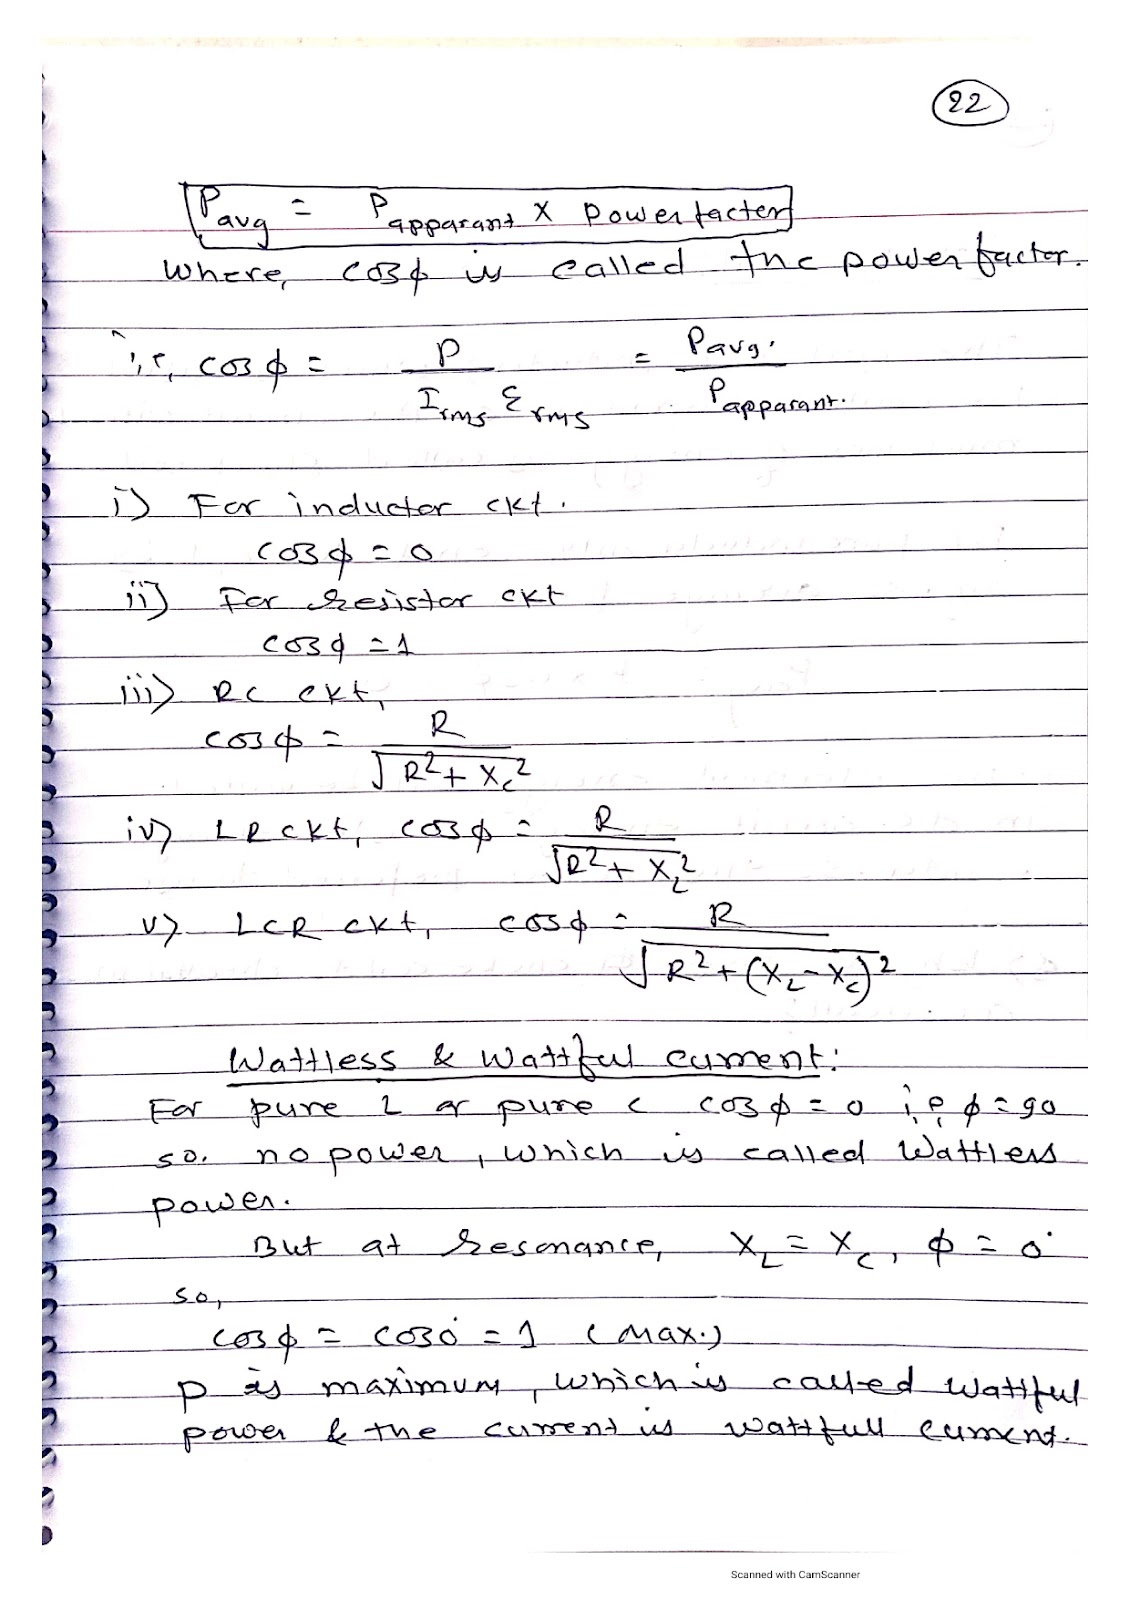 22
Pavg = Papparant × powerfactor
Where, cosϕ is called the power factor.
i,e, cosϕ = P / Irms Ɛrms = Pavg. / Papparant.
i) For inductor ckt.
cosϕ = 0
ii) For resistor ckt
cosϕ = 1
iii) RC ckt,
cosϕ = R / √(R² + Xc²)
iv) LR ckt, cosϕ = R / √(R² + XL²)
v) LCR ckt, cosϕ = R / √(R² + (XL - Xc)²)
Wattless & Wattful current:
For pure L or pure C cosϕ = 0 i,e, ϕ = 90
so. no power, which is called Wattless
power.
But at resonance, XL = Xc, ϕ = 0°
so,
cosϕ = cos0° = 1 (Max.)
P is maximum, which is called wattful
power & the current is wattfull current.
Scanned with CamScanner